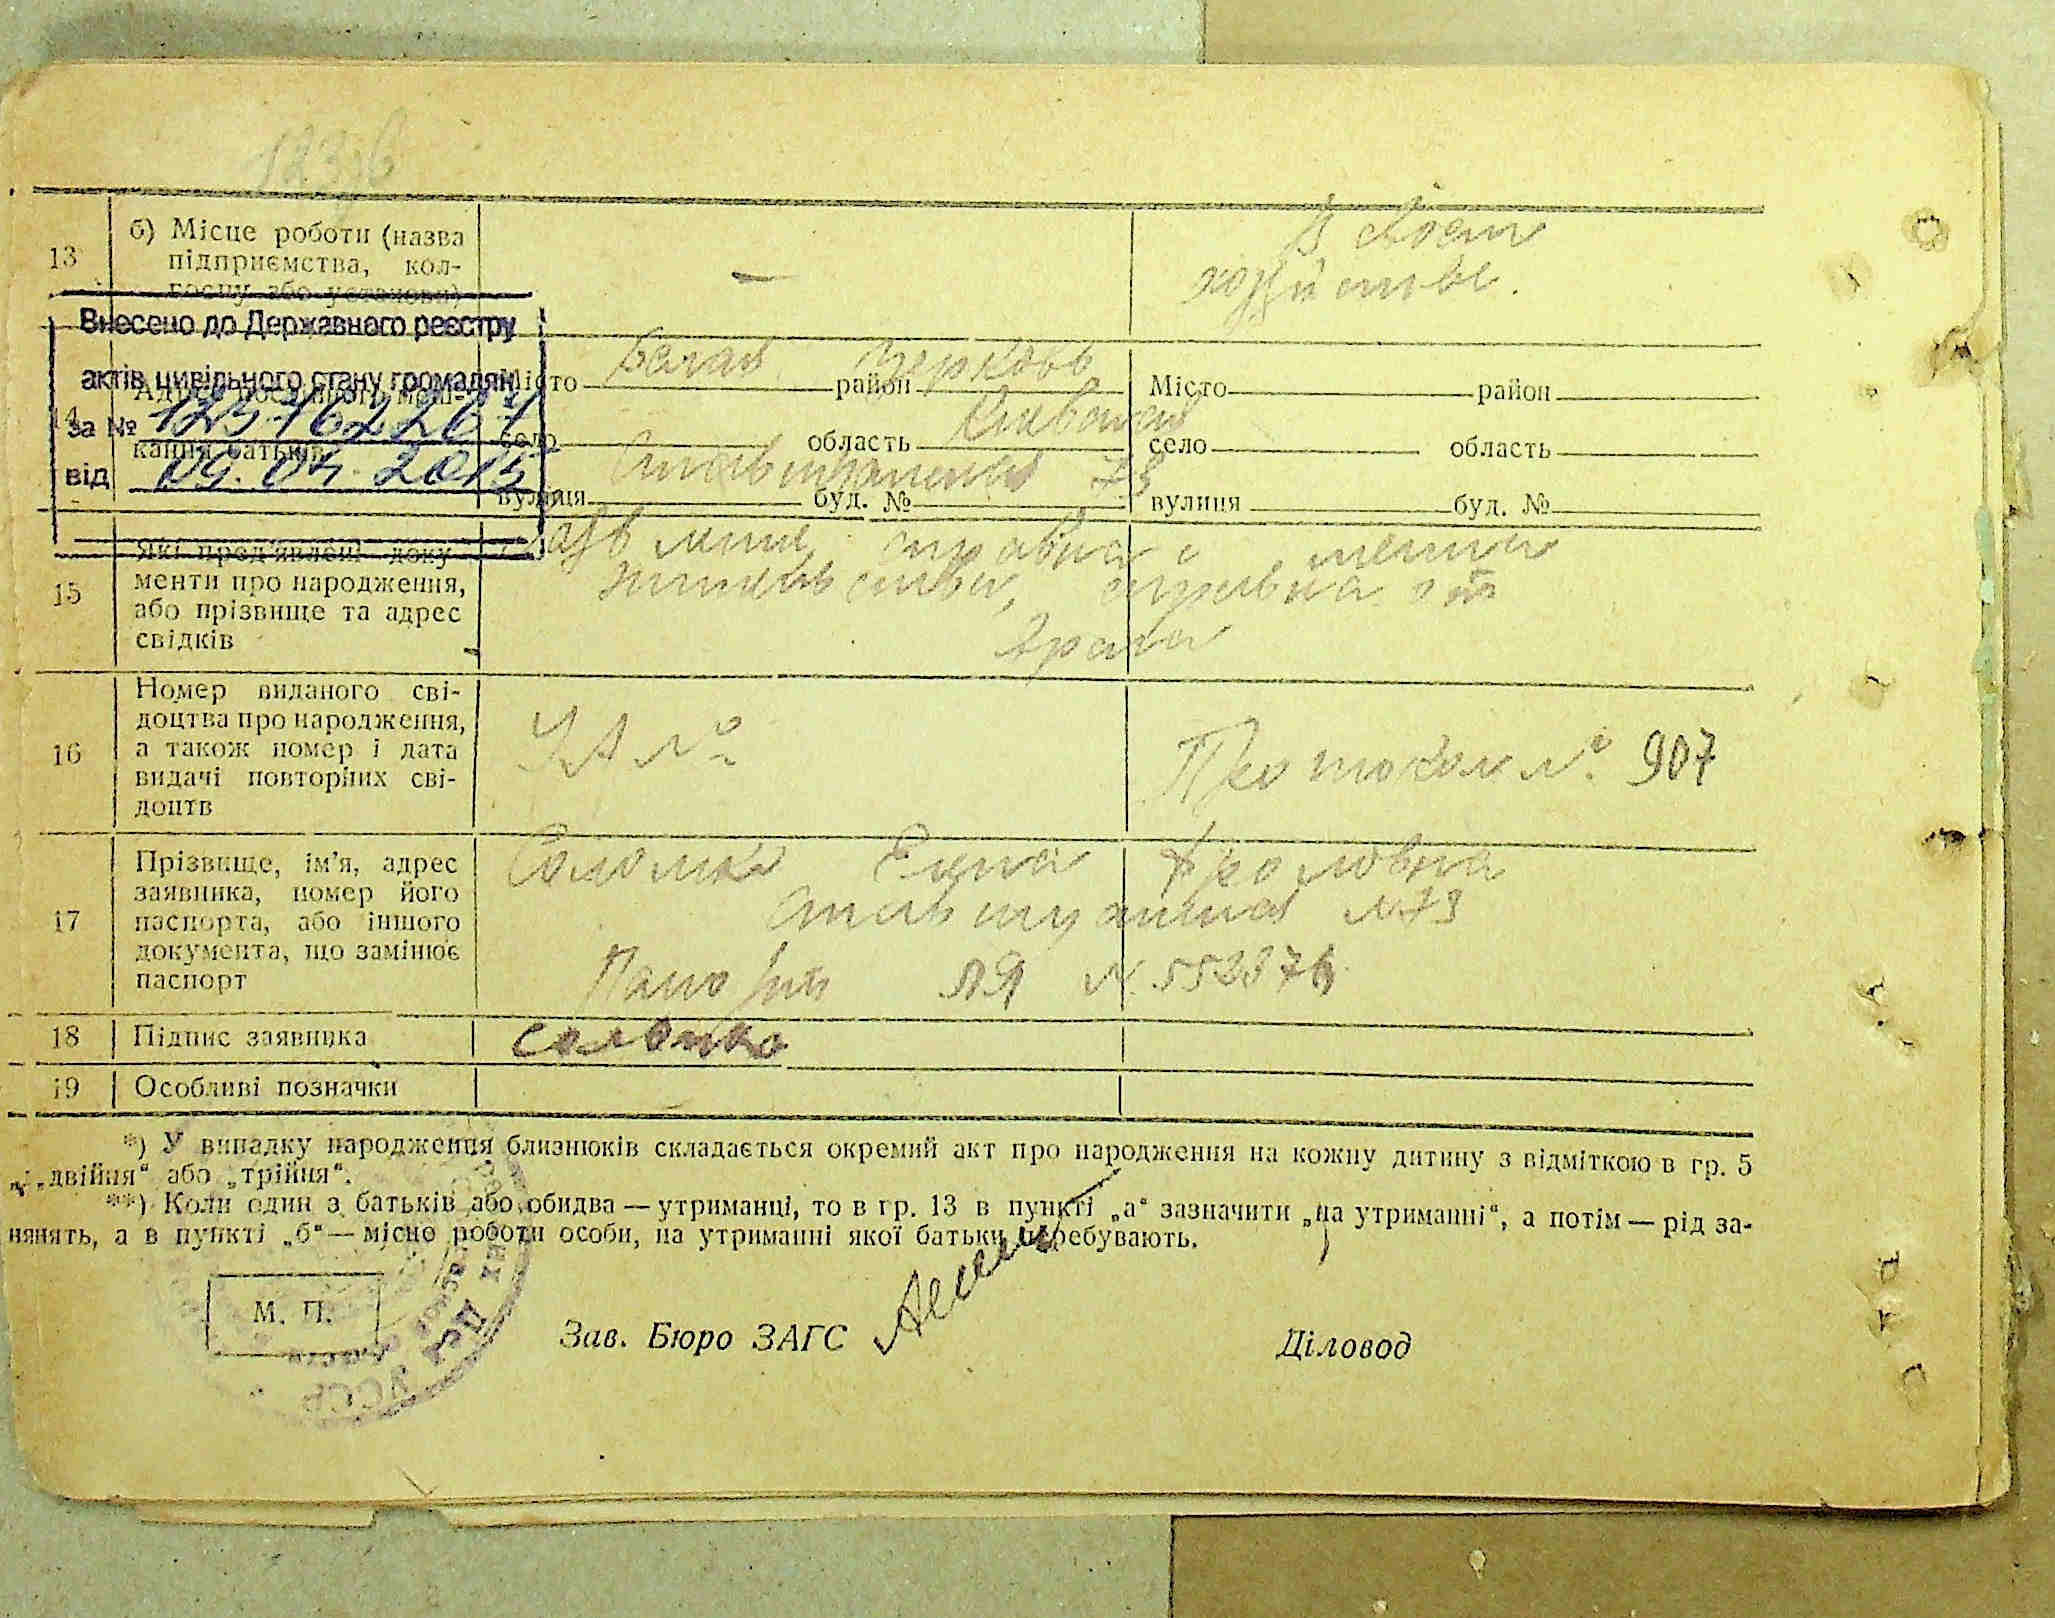 13
б) Місце роботи (назва
підприємства, кол-
госпу або установи)
—
В своем
хозяйстве.
Внесено до Державного реєстру
актів цивільного стану громадян
за №
від 09.04.2015
14
кання батьків
Місто Белая Церковь район
село область Киевская
вулиця буд. № 73
Місто район
село область
вулиця буд. №
15
Які пред'явлені доку-
менти про народження,
або прізвище та адрес
свідків
справка с места
жительства, справка от
врача
16
Номер виданого сві-
доцтва про народження,
а також номер і дата
видачі повторних сві-
доцтв
УА №
Протокол №. 907
17
Прізвище, ім'я, адрес
заявника, номер його
паспорта, або іншого
документа, що замінює
паспорт
Фроловна
№ 73
Паспорт
18 Підпис заявника
19 Особливі позначки
*) У випадку народження близнюків складається окремий акт про народження на кожну дитину з відміткою в гр. 5
„двійня" або „трійня".
**) Коли один з батьків або обидва — утриманці, то в гр. 13 в пункті „а" зазначити „на утриманні", а потім — рід за-
нянять, а в пункті „б" — місце роботи особи, на утриманні якої батьки перебувають.
М. П.
Зав. Бюро ЗАГС
Діловод